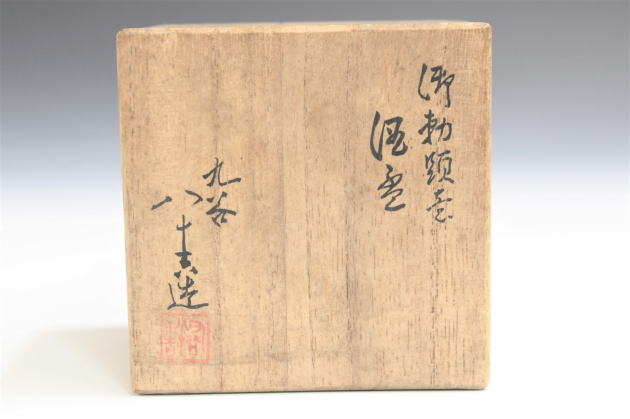 御勅題意
酒盃
九谷
八十吉造